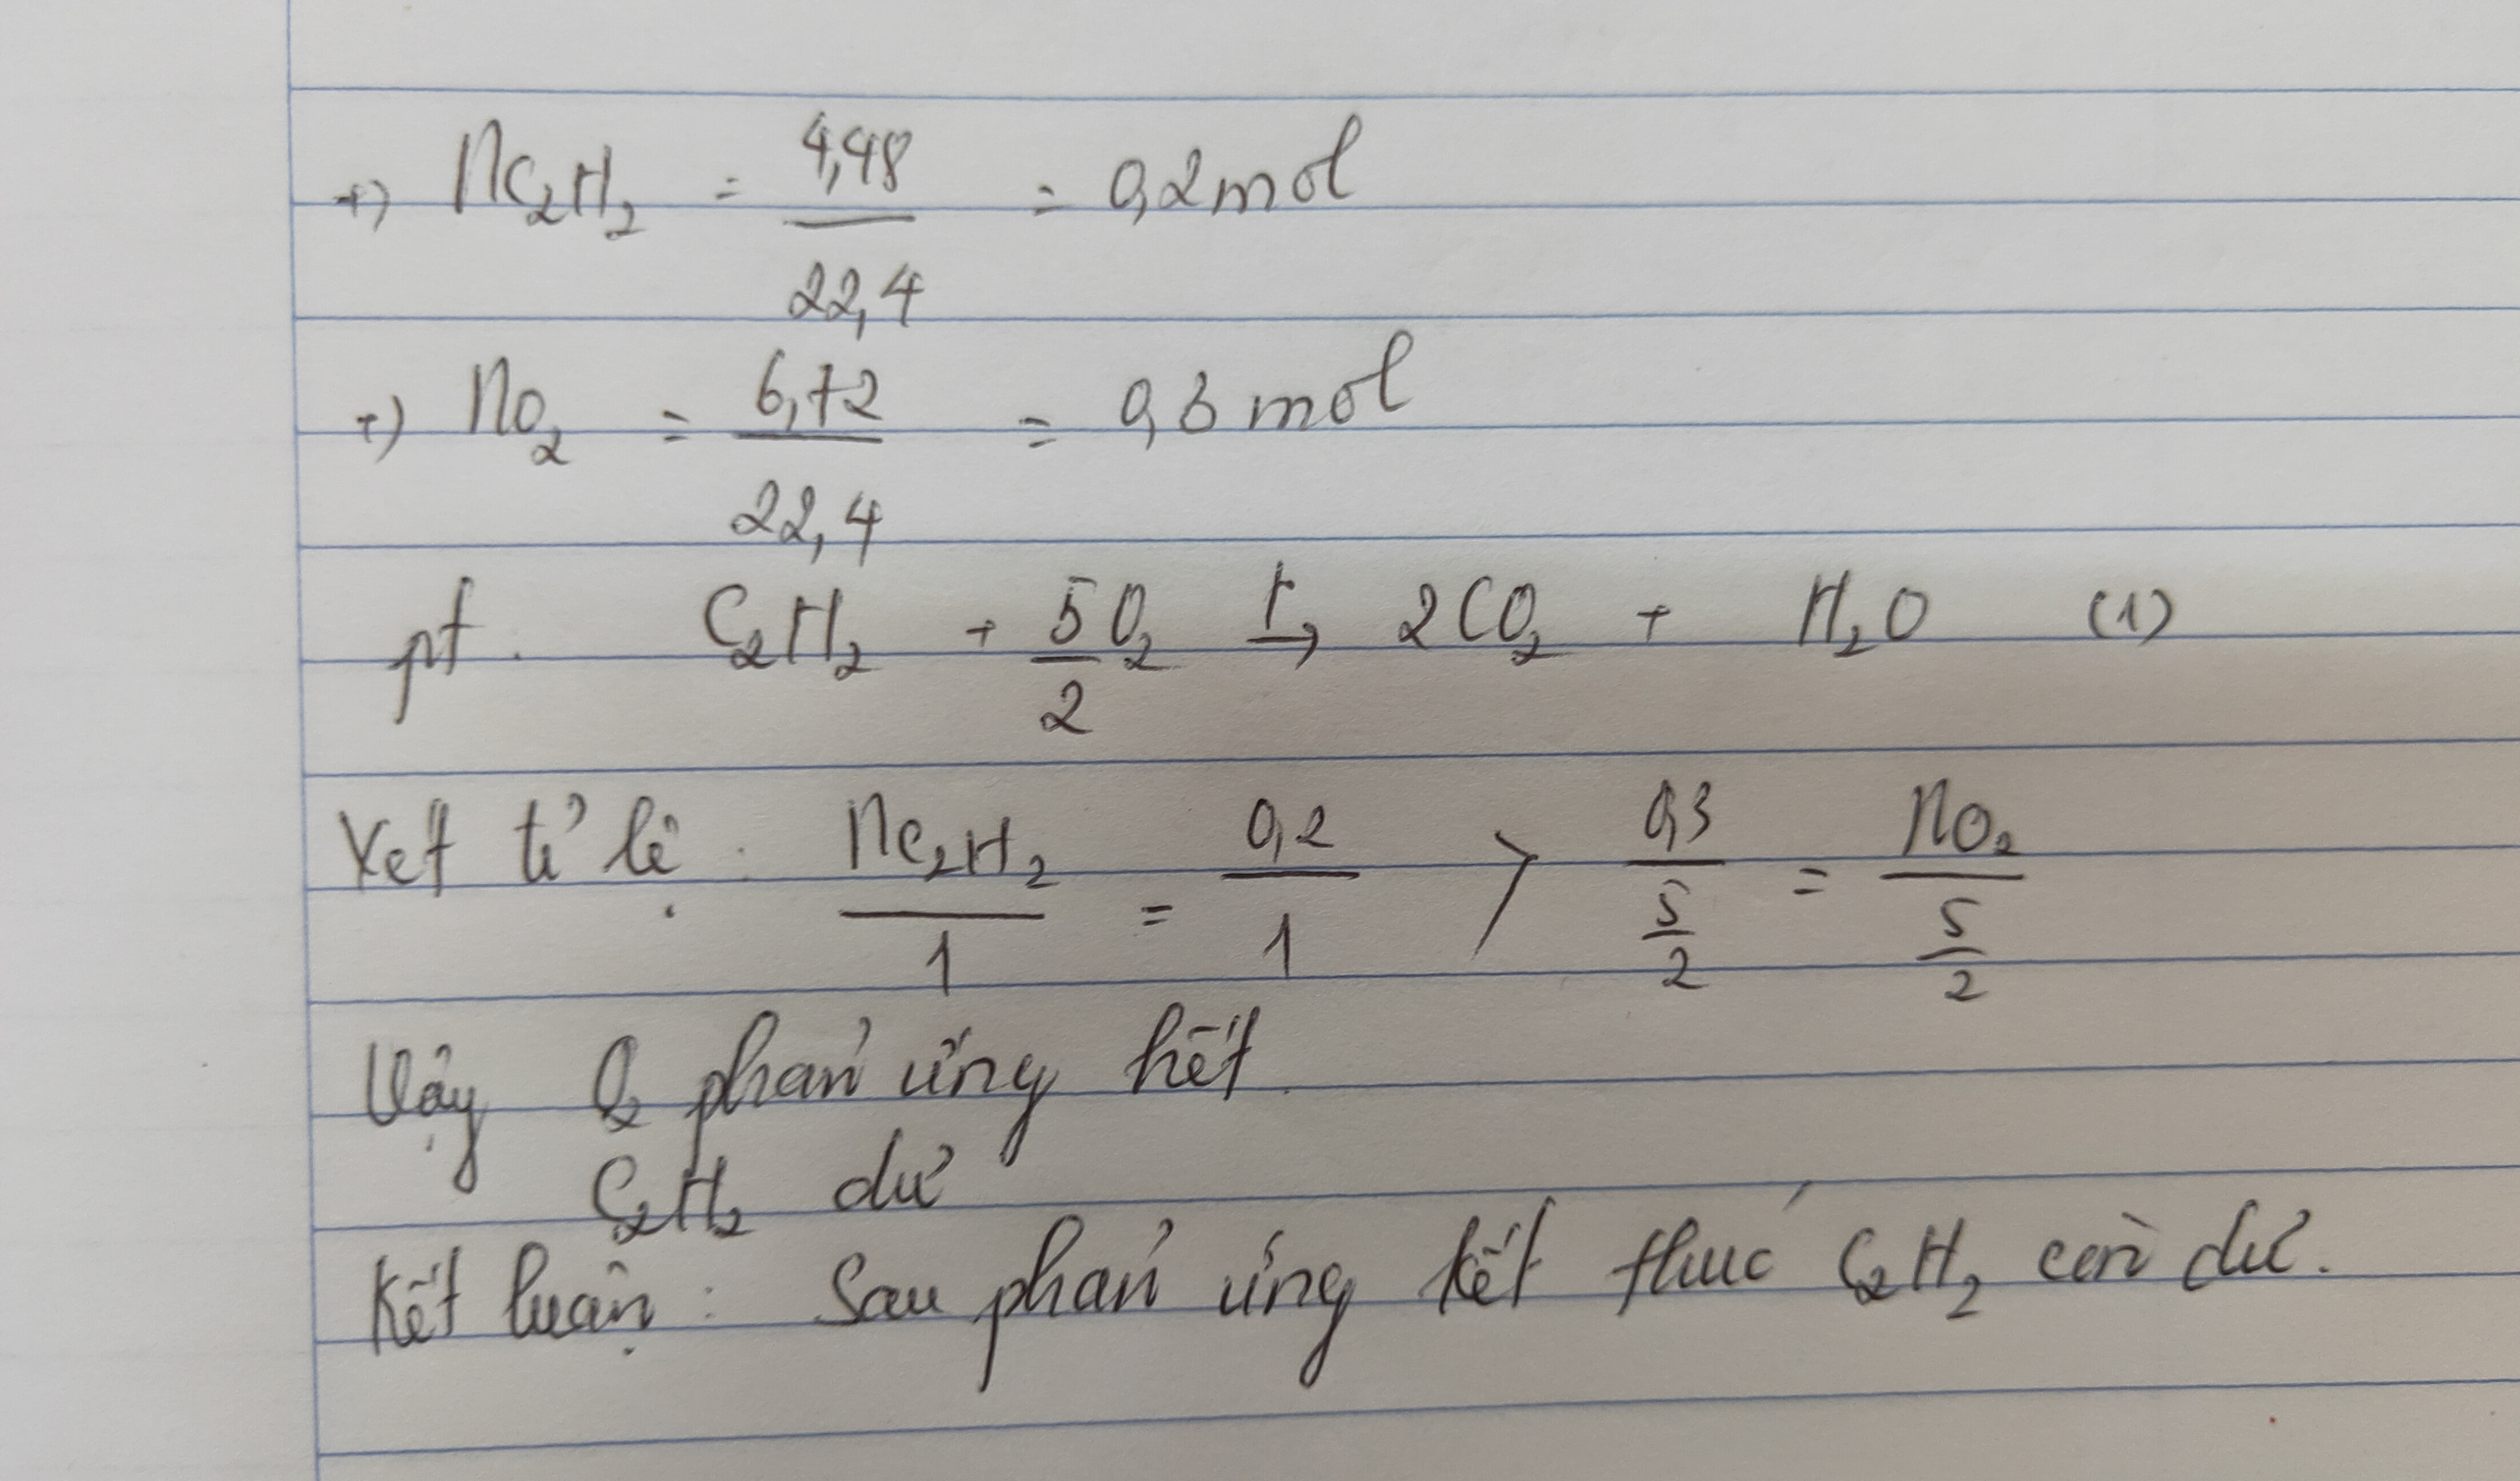 +) nC₂H₂ = 4,48/22,4 = 0,2 mol
+) nO₂ = 6,72/22,4 = 0,3 mol
pt. C₂H₂ + 5/2 O₂ t→ 2CO₂ + H₂O (1)
Xét tỉ lệ: nC₂H₂/1 = 0,2/1 > 0,3/(5/2) = nO₂/(5/2)
Vậy O₂ phản ứng hết.
C₂H₂ dư
Kết luận: Sau phản ứng kết thúc C₂H₂ còn dư.